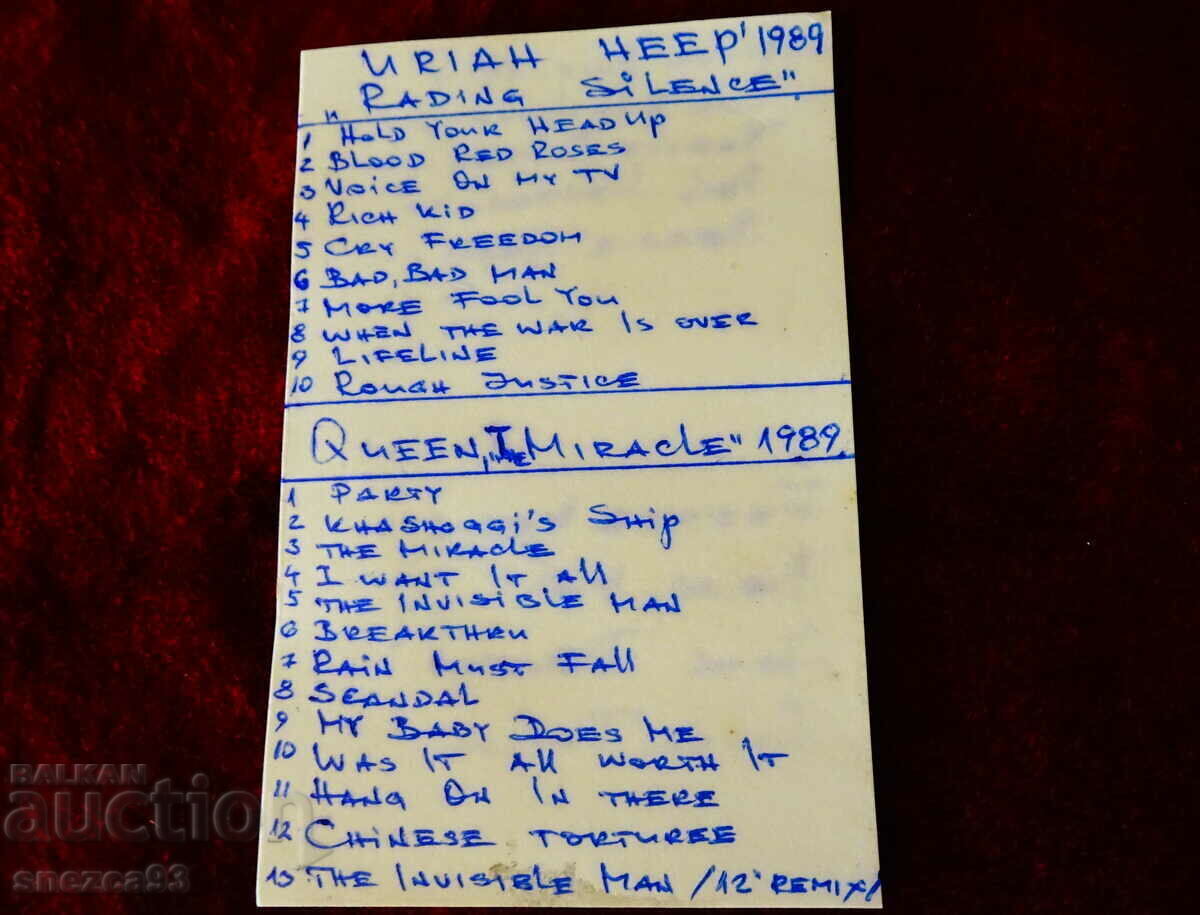 URIAH HEEP' 1989
„RADING SILENCE"
1 HOLD YOUR HEAD UP
2 BLOOD RED ROSES
3 VOICE ON MY TV
4 RICH KID
5 CRY FREEDOM
6 BAD, BAD MAN
7 MORE FOOL YOU
8 WHEN THE WAR IS OVER
9 LIFELINE
10 ROUGH JUSTICE
QUEEN „THE MIRACLE" 1989
1 PARTY
2 KHASHOGGI'S SHIP
3 THE MIRACLE
4 I WANT IT ALL
5 THE INVISIBLE MAN
6 BREAKTHRU
7 RAIN MUST FALL
8 SCANDAL
9 MY BABY DOES ME
10 WAS IT ALL WORTH IT
11 HANG ON IN THERE
12 CHINESE TORTUREE
13 THE INVISIBLE MAN /12' REMIX/
BALKAN
auction
snezca93